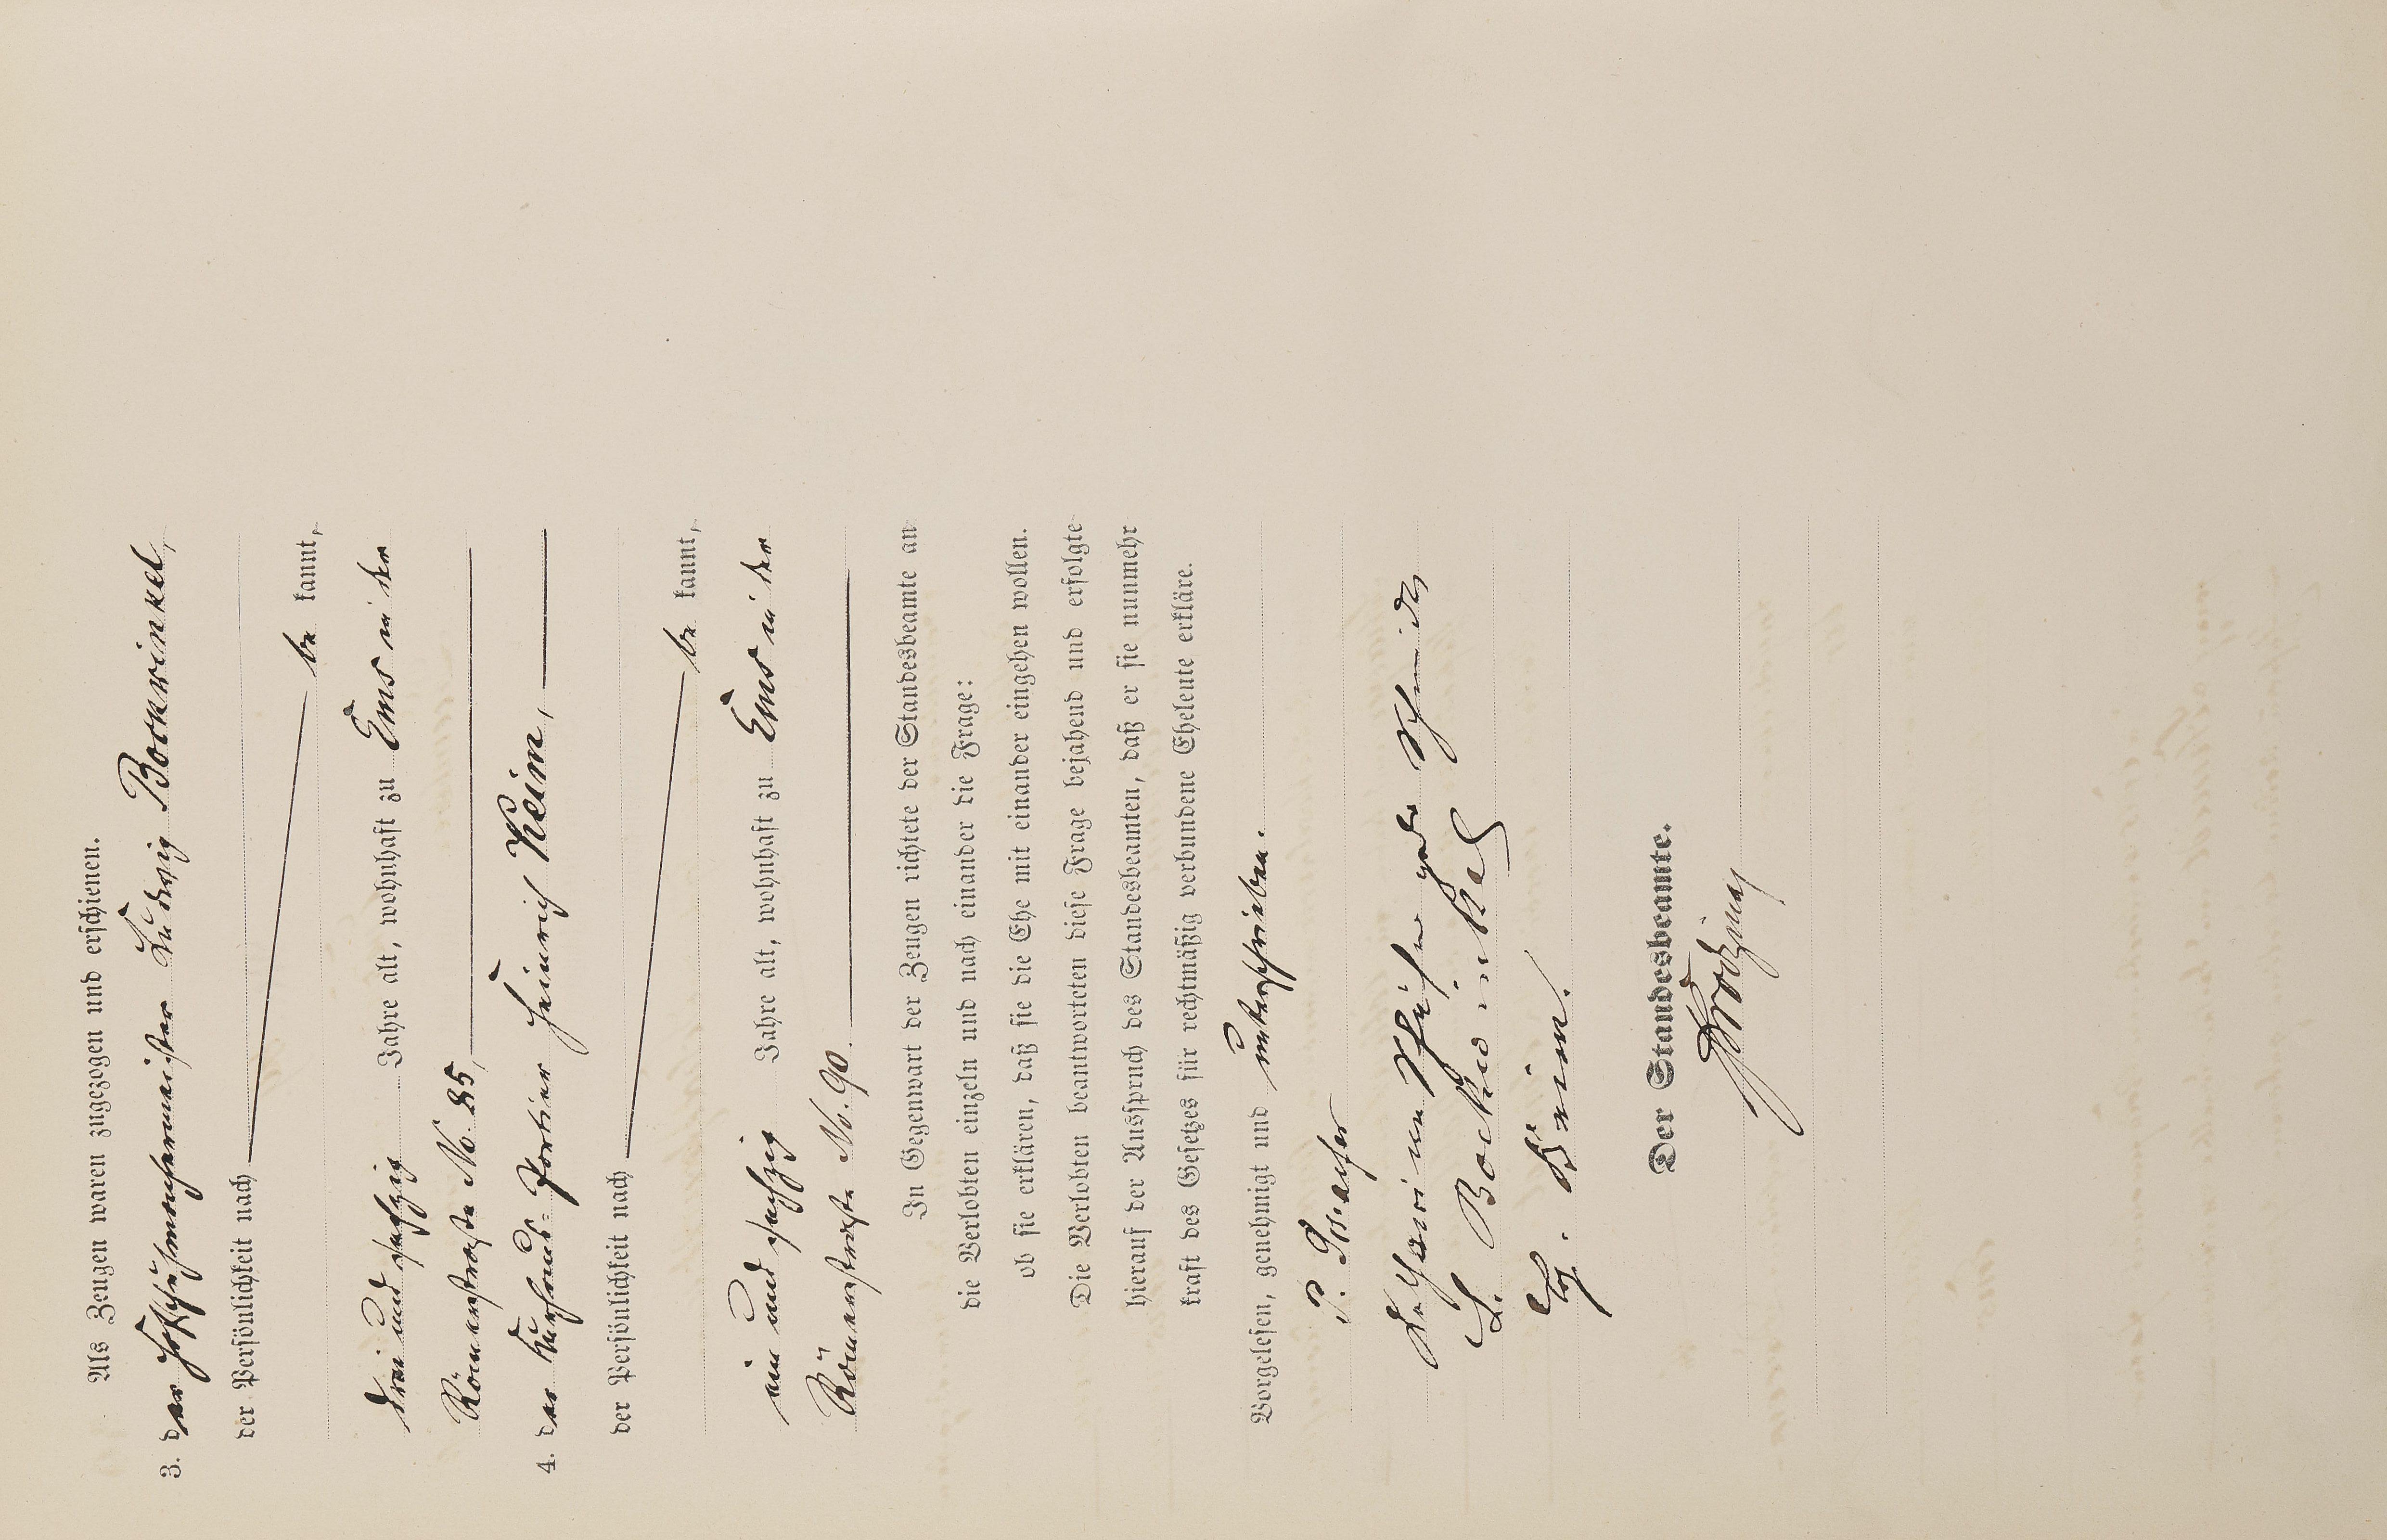 Als Zeugen waren zugezogen und erschienen.
3. der Hofschuhmachermeister Ludwig Bockwinkel,
der Persönlichkeit nach
be kannt,
drei und sechzig Jahre alt, wohnhaft zu Ems in der
Römerstraße No. 85,
4. der Kursaal-Portier Heinrich Keim,
der Persönlichkeit nach
be kannt,
ein und sechzig Jahre alt, wohnhaft zu Ems in der
Römerstraße No. 90.
In Gegenwart der Zeugen richtete der Standesbeamte an
die Verlobten einzeln und nach einander die Frage:
ob sie erklären, daß sie die Ehe mit einander eingehen wollen.
Die Verlobten beantworteten diese Frage bejahend und erfolgte
hierauf der Ausspruch des Standesbeamten, daß er sie nunmehr
kraft des Gesetzes für rechtmäßig verbundene Eheleute erkläre.
Vorgelesen, genehmigt und unterschrieben.
P.
Katharina
L. Bockwinkel
Hch. Keim.
Der Standesbeamte.